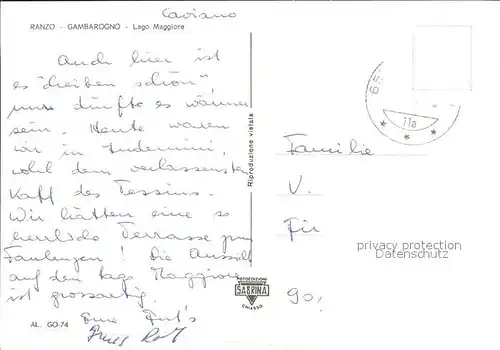 Caviano
RANZO - GAMBAROGNO - Lago Maggiore
Auch hier ist
es "cheiben schön",
nur dürfte es wärmer
sein. Heute waren
wir in Indemini,
wohl dem verlassensten
Kaff des Tessins.
Wir hätten eine so
herrliche Terrasse zum
Faulenzen! Die Aussicht
auf den Lago Maggiore
ist grossartig.
AL. GO-74
Riproduzione vietata
FOTOEDIZIONI
SABRINA
CHIASSO
11a
Familie
V.
privacy protection
Datenschutz
90!